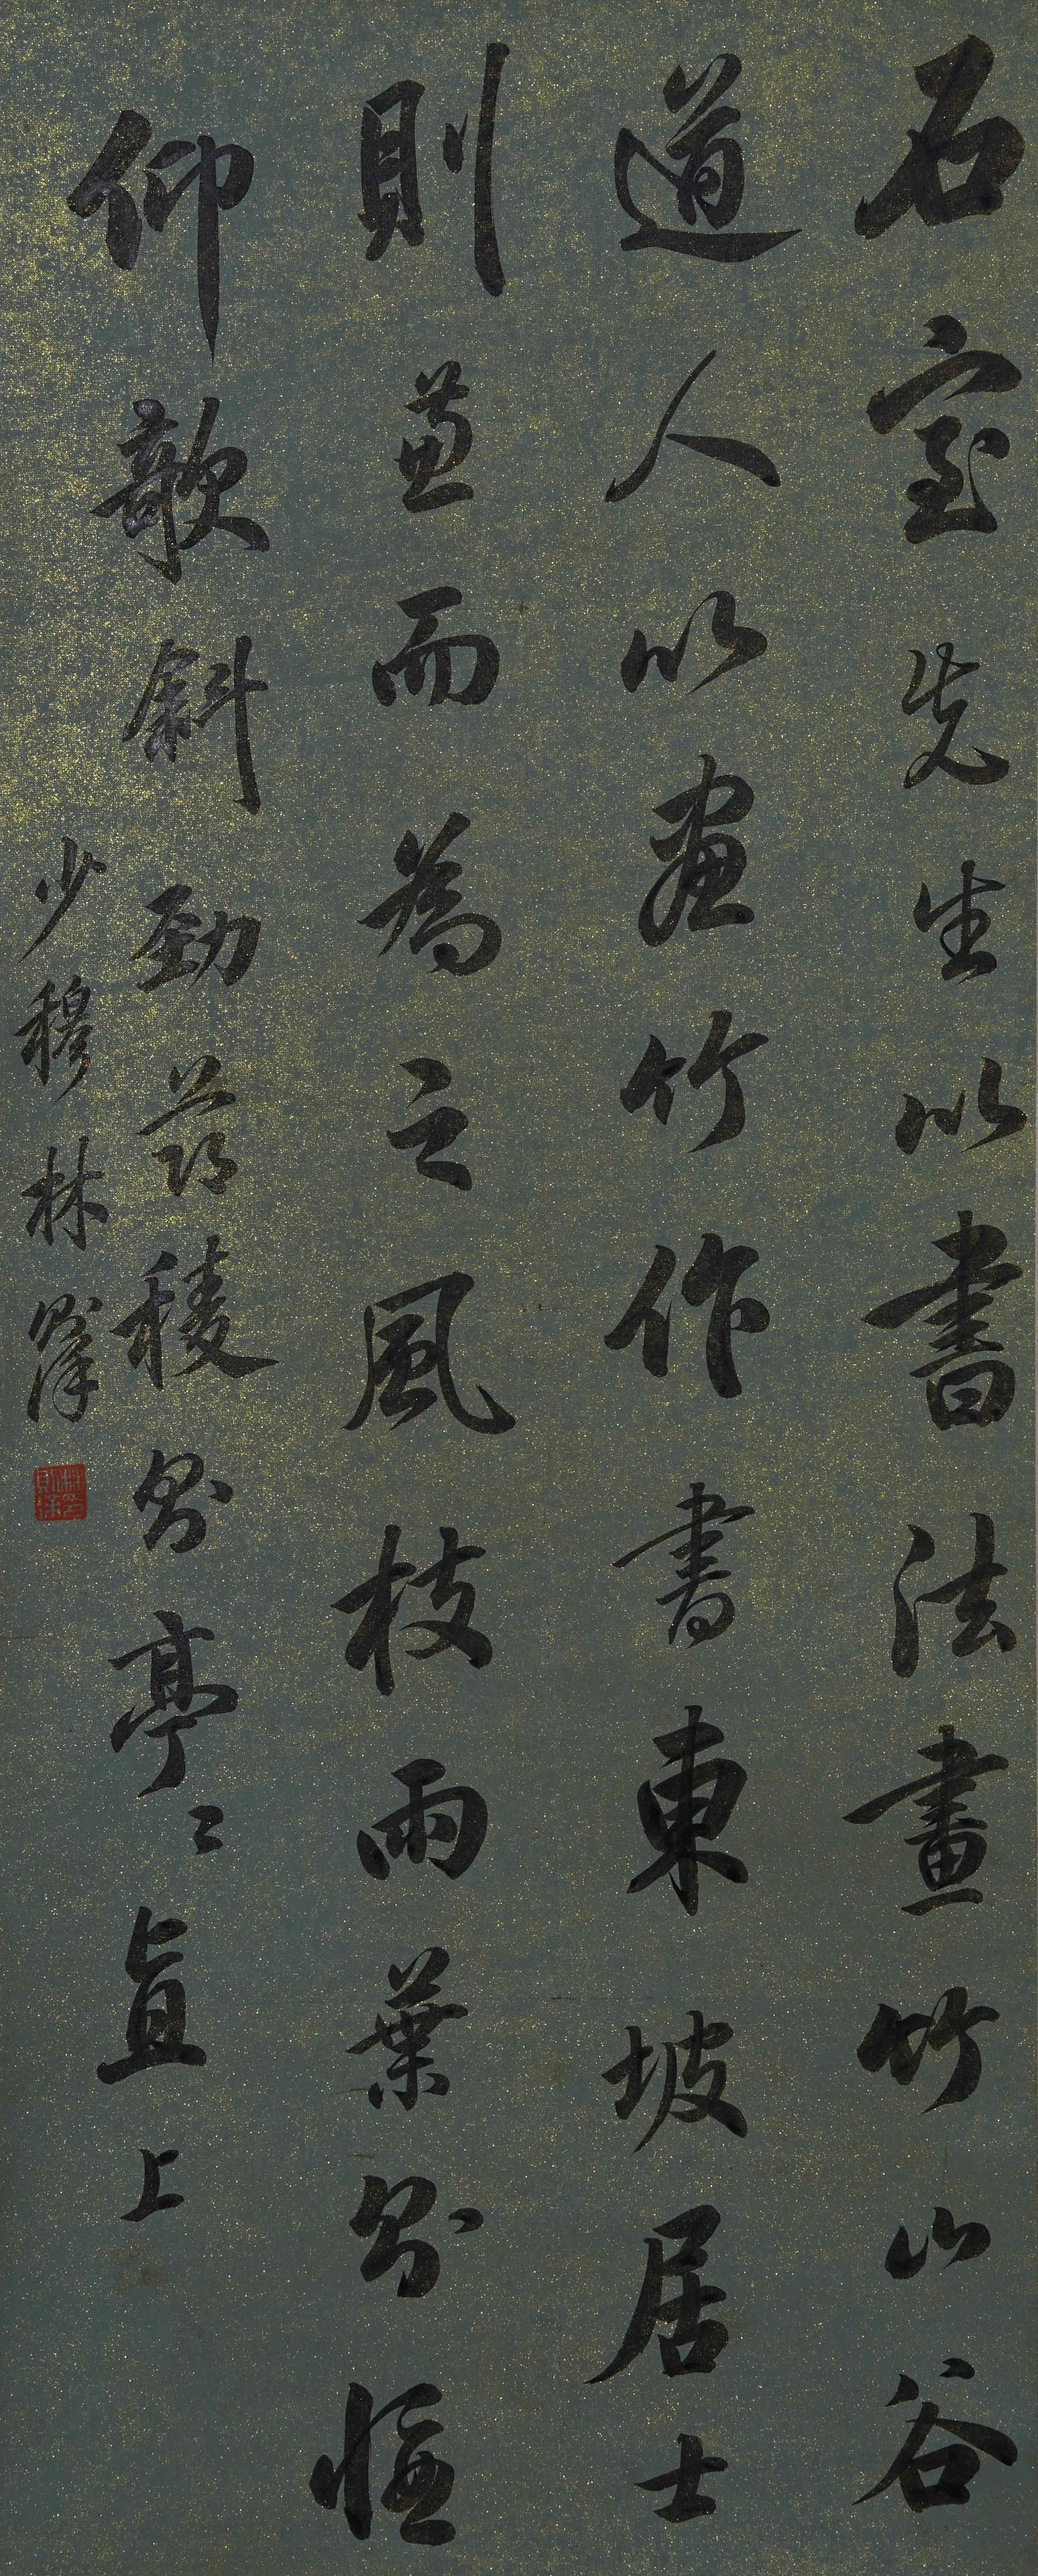 石室先生以書法畫竹山谷
道人以畫竹作書東坡居士
則兼而為之風枝雨葉則偃
仰欹斜勁節稜則亭〻直上
少穆林則徐
林則徐印